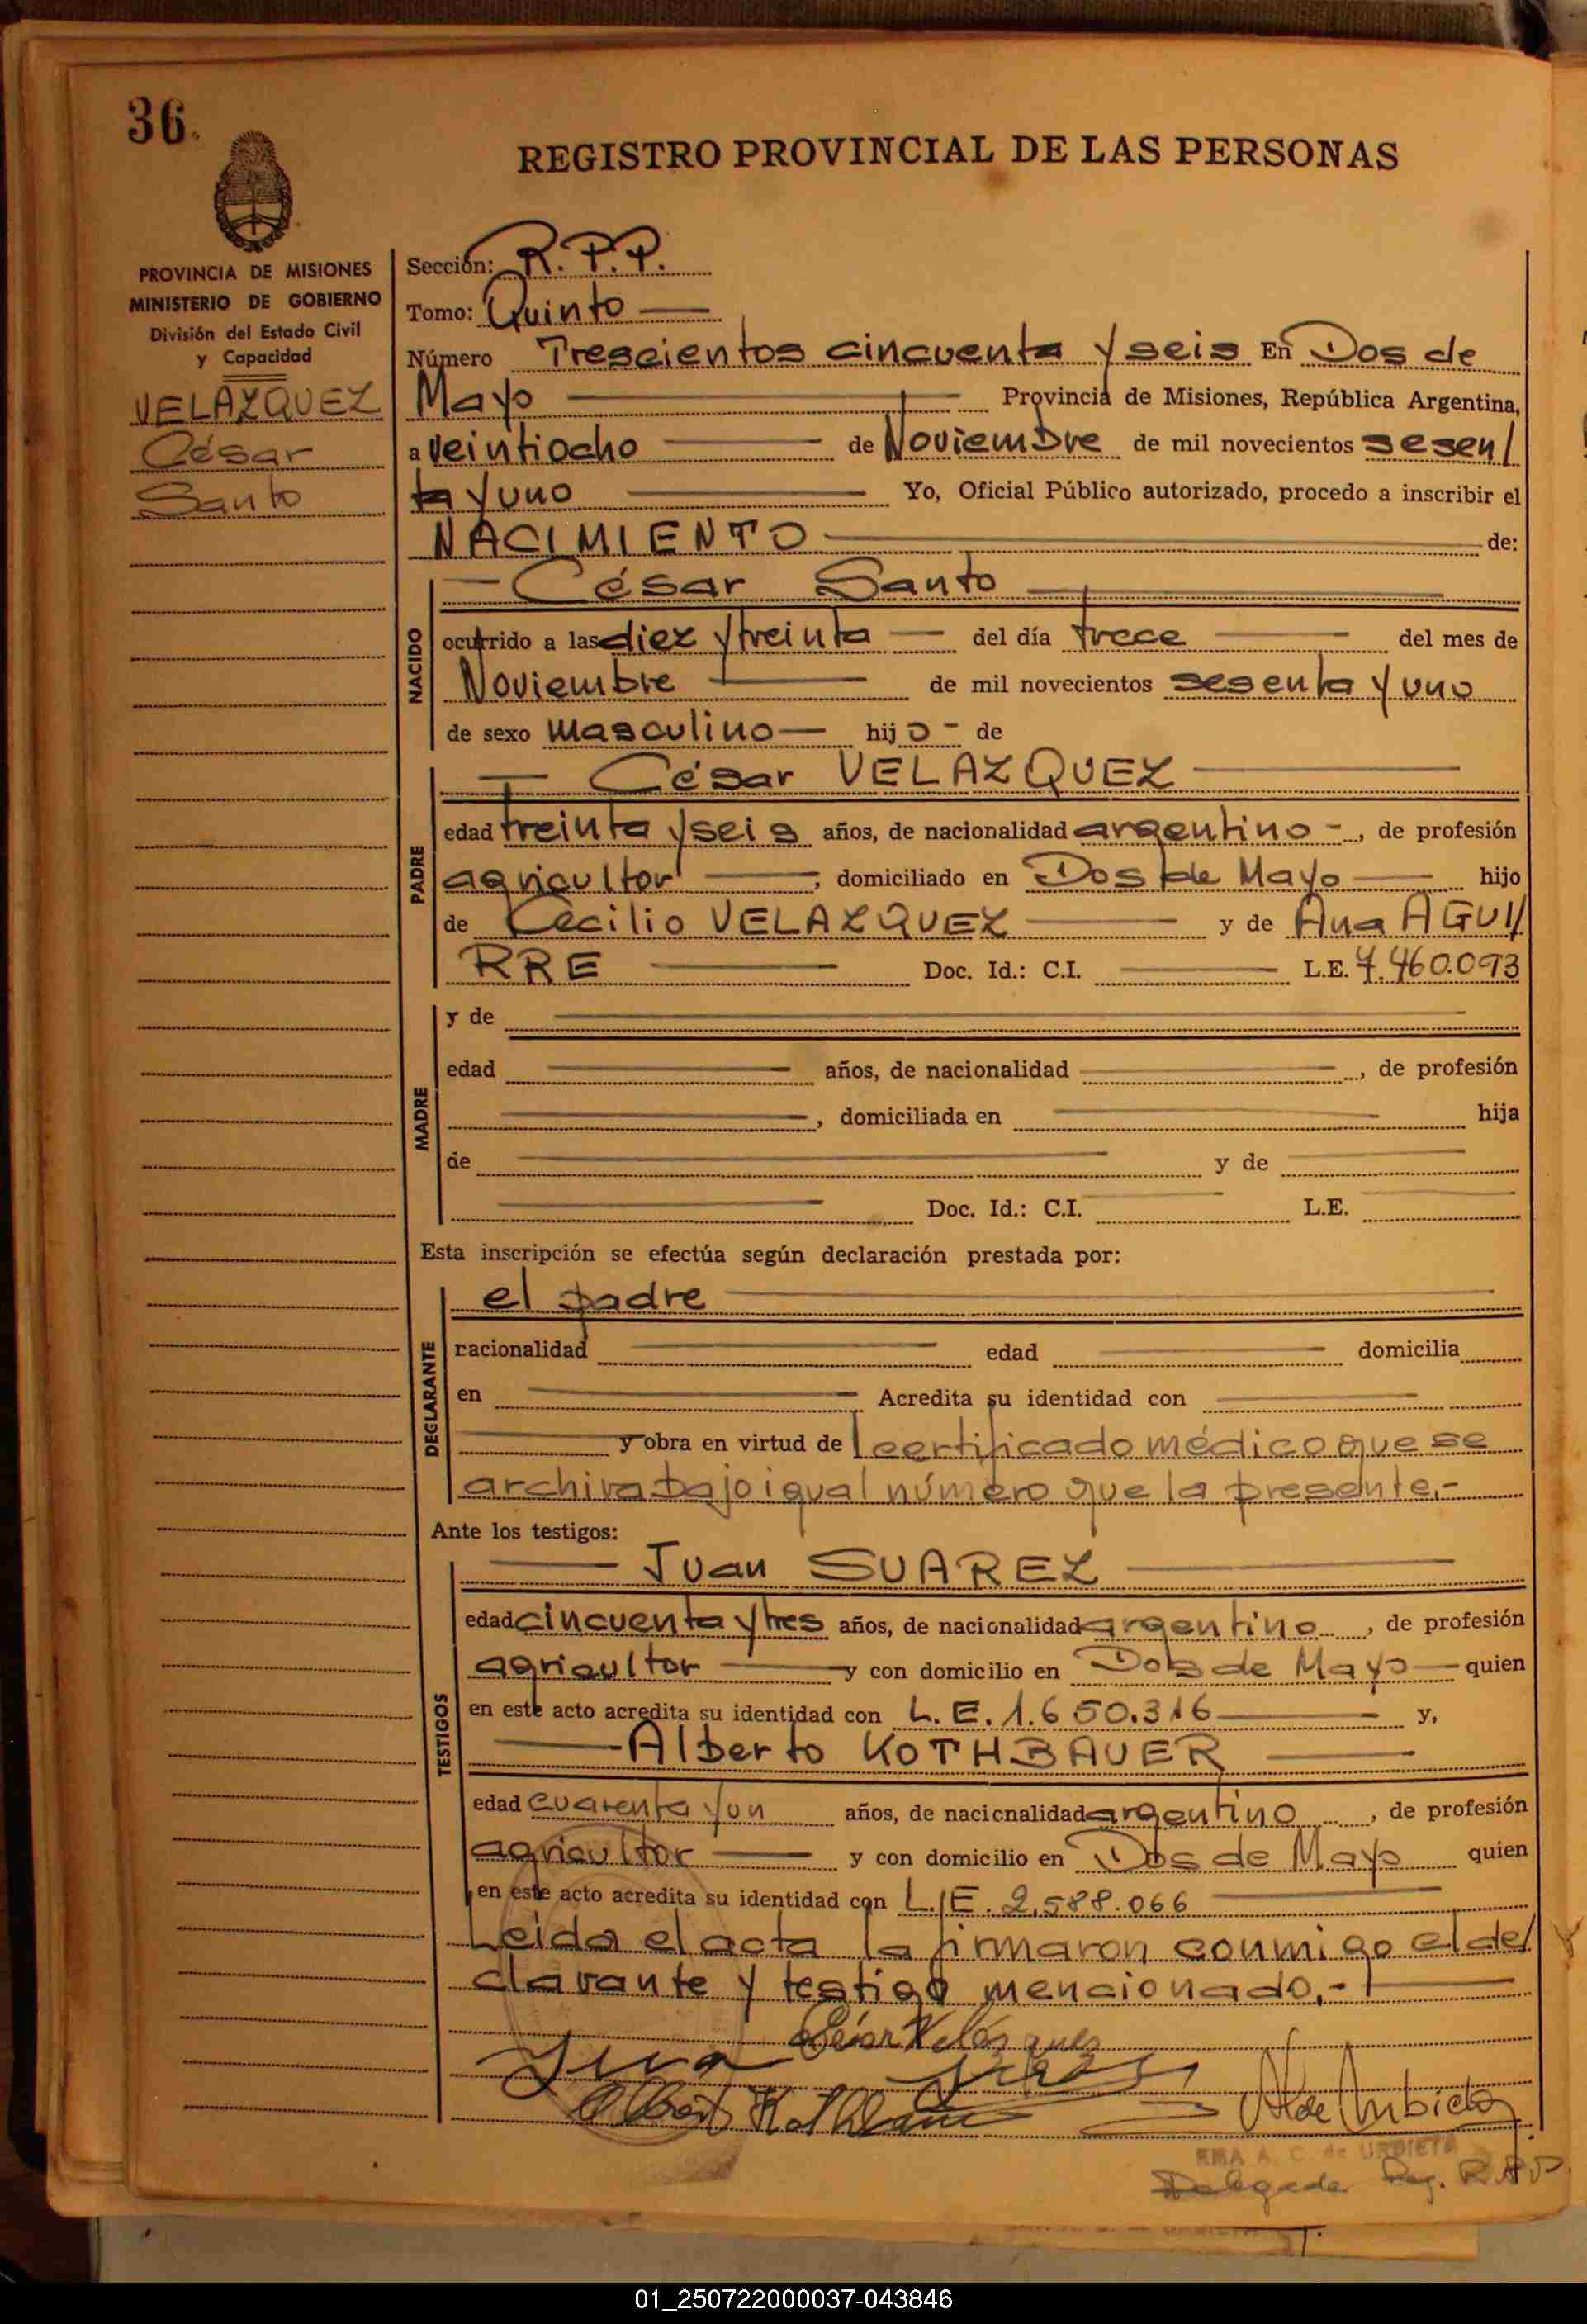 36.
REGISTRO PROVINCIAL DE LAS PERSONAS
PROVINCIA DE MISIONES
MINISTERIO DE GOBIERNO
División del Estado Civil
y Capacidad
VELAZQUEZ
César
Santo
Sección: R.P.P.
Tomo: Quinto
Número Trescientos cincuenta y seis En Dos de
Mayo Provincia de Misiones, República Argentina,
a veintiocho de Noviembre de mil novecientos sesen/
ta y uno Yo, Oficial Público autorizado, procedo a inscribir el
NACIMIENTO de:
NACIDO
César Santo
ocurrido a las diez y treinta del día trece del mes de
Noviembre de mil novecientos sesenta y uno
de sexo masculino hijo - de
PADRE
César VELAZQUEZ
edad treinta y seis años, de nacionalidad argentino -, de profesión
agricultor, domiciliado en Dos de Mayo hijo
de Cecilio VELAZQUEZ y de Ana AGUI/
RRE Doc. Id.: C.I. L.E. 7.460.093
MADRE
y de
edad años, de nacionalidad , de profesión
, domiciliada en hija
de y de
Doc. Id.: C.I. L.E.
Esta inscripción se efectúa según declaración prestada por:
DECLARANTE
el padre
nacionalidad edad domicilia
en Acredita su identidad con
y obra en virtud de certificado médico que se
archiva bajo igual número que la presente.-
Ante los testigos:
TESTIGOS
Juan SUAREZ
edad cincuenta y tres años, de nacionalidad argentino, de profesión
agricultor y con domicilio en Dos de Mayo quien
en este acto acredita su identidad con L.E. 1.650.316 y,
Alberto KOTHBAUER
edad cuarenta y un años, de nacionalidad argentino, de profesión
agricultor y con domicilio en Dos de Mayo quien
en este acto acredita su identidad con L.E. 2.588.066
Leida el acta la firmaron conmigo el de/
clarante y testigo mencionado.-
César Velásquez
Juan
Albert Kothbauer
A de Urbieta
EMA A. C de URBIETA
Delegada Reg. R.P.P.
01_250722000037-043846